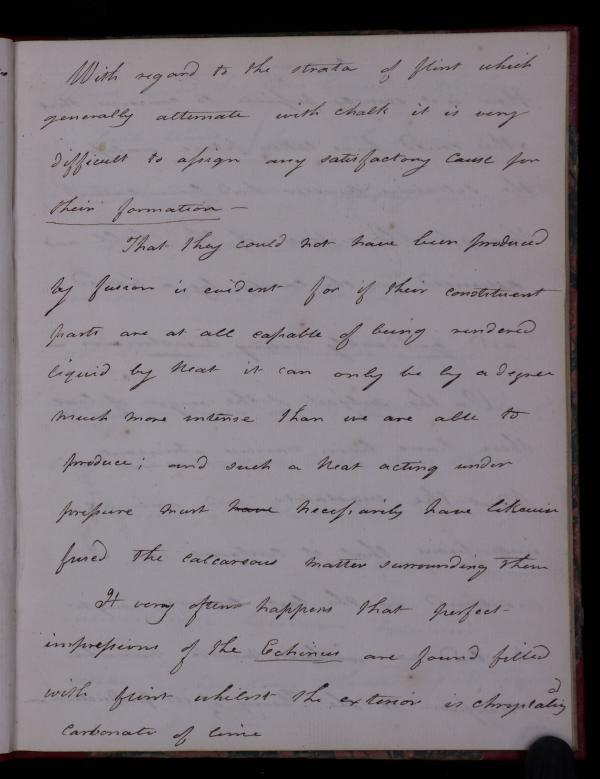 With regard to the strata of flint which
generally alternate with chalk it is very
difficult to assign any satisfactory cause for
their formation —
That they could not have been produced
by fusion is evident for if their constituent
parts are at all capable of being rendered
liquid by heat it can only be by a degree
much more intense than we are able to
produce; and such a heat acting under
pressure must have necessarily have likewise
fused the calcareous matter surrounding them
It very often happens that perfect
impressions of the Echinus are found filled
with flint whilst the exterior is
carbonate of lime